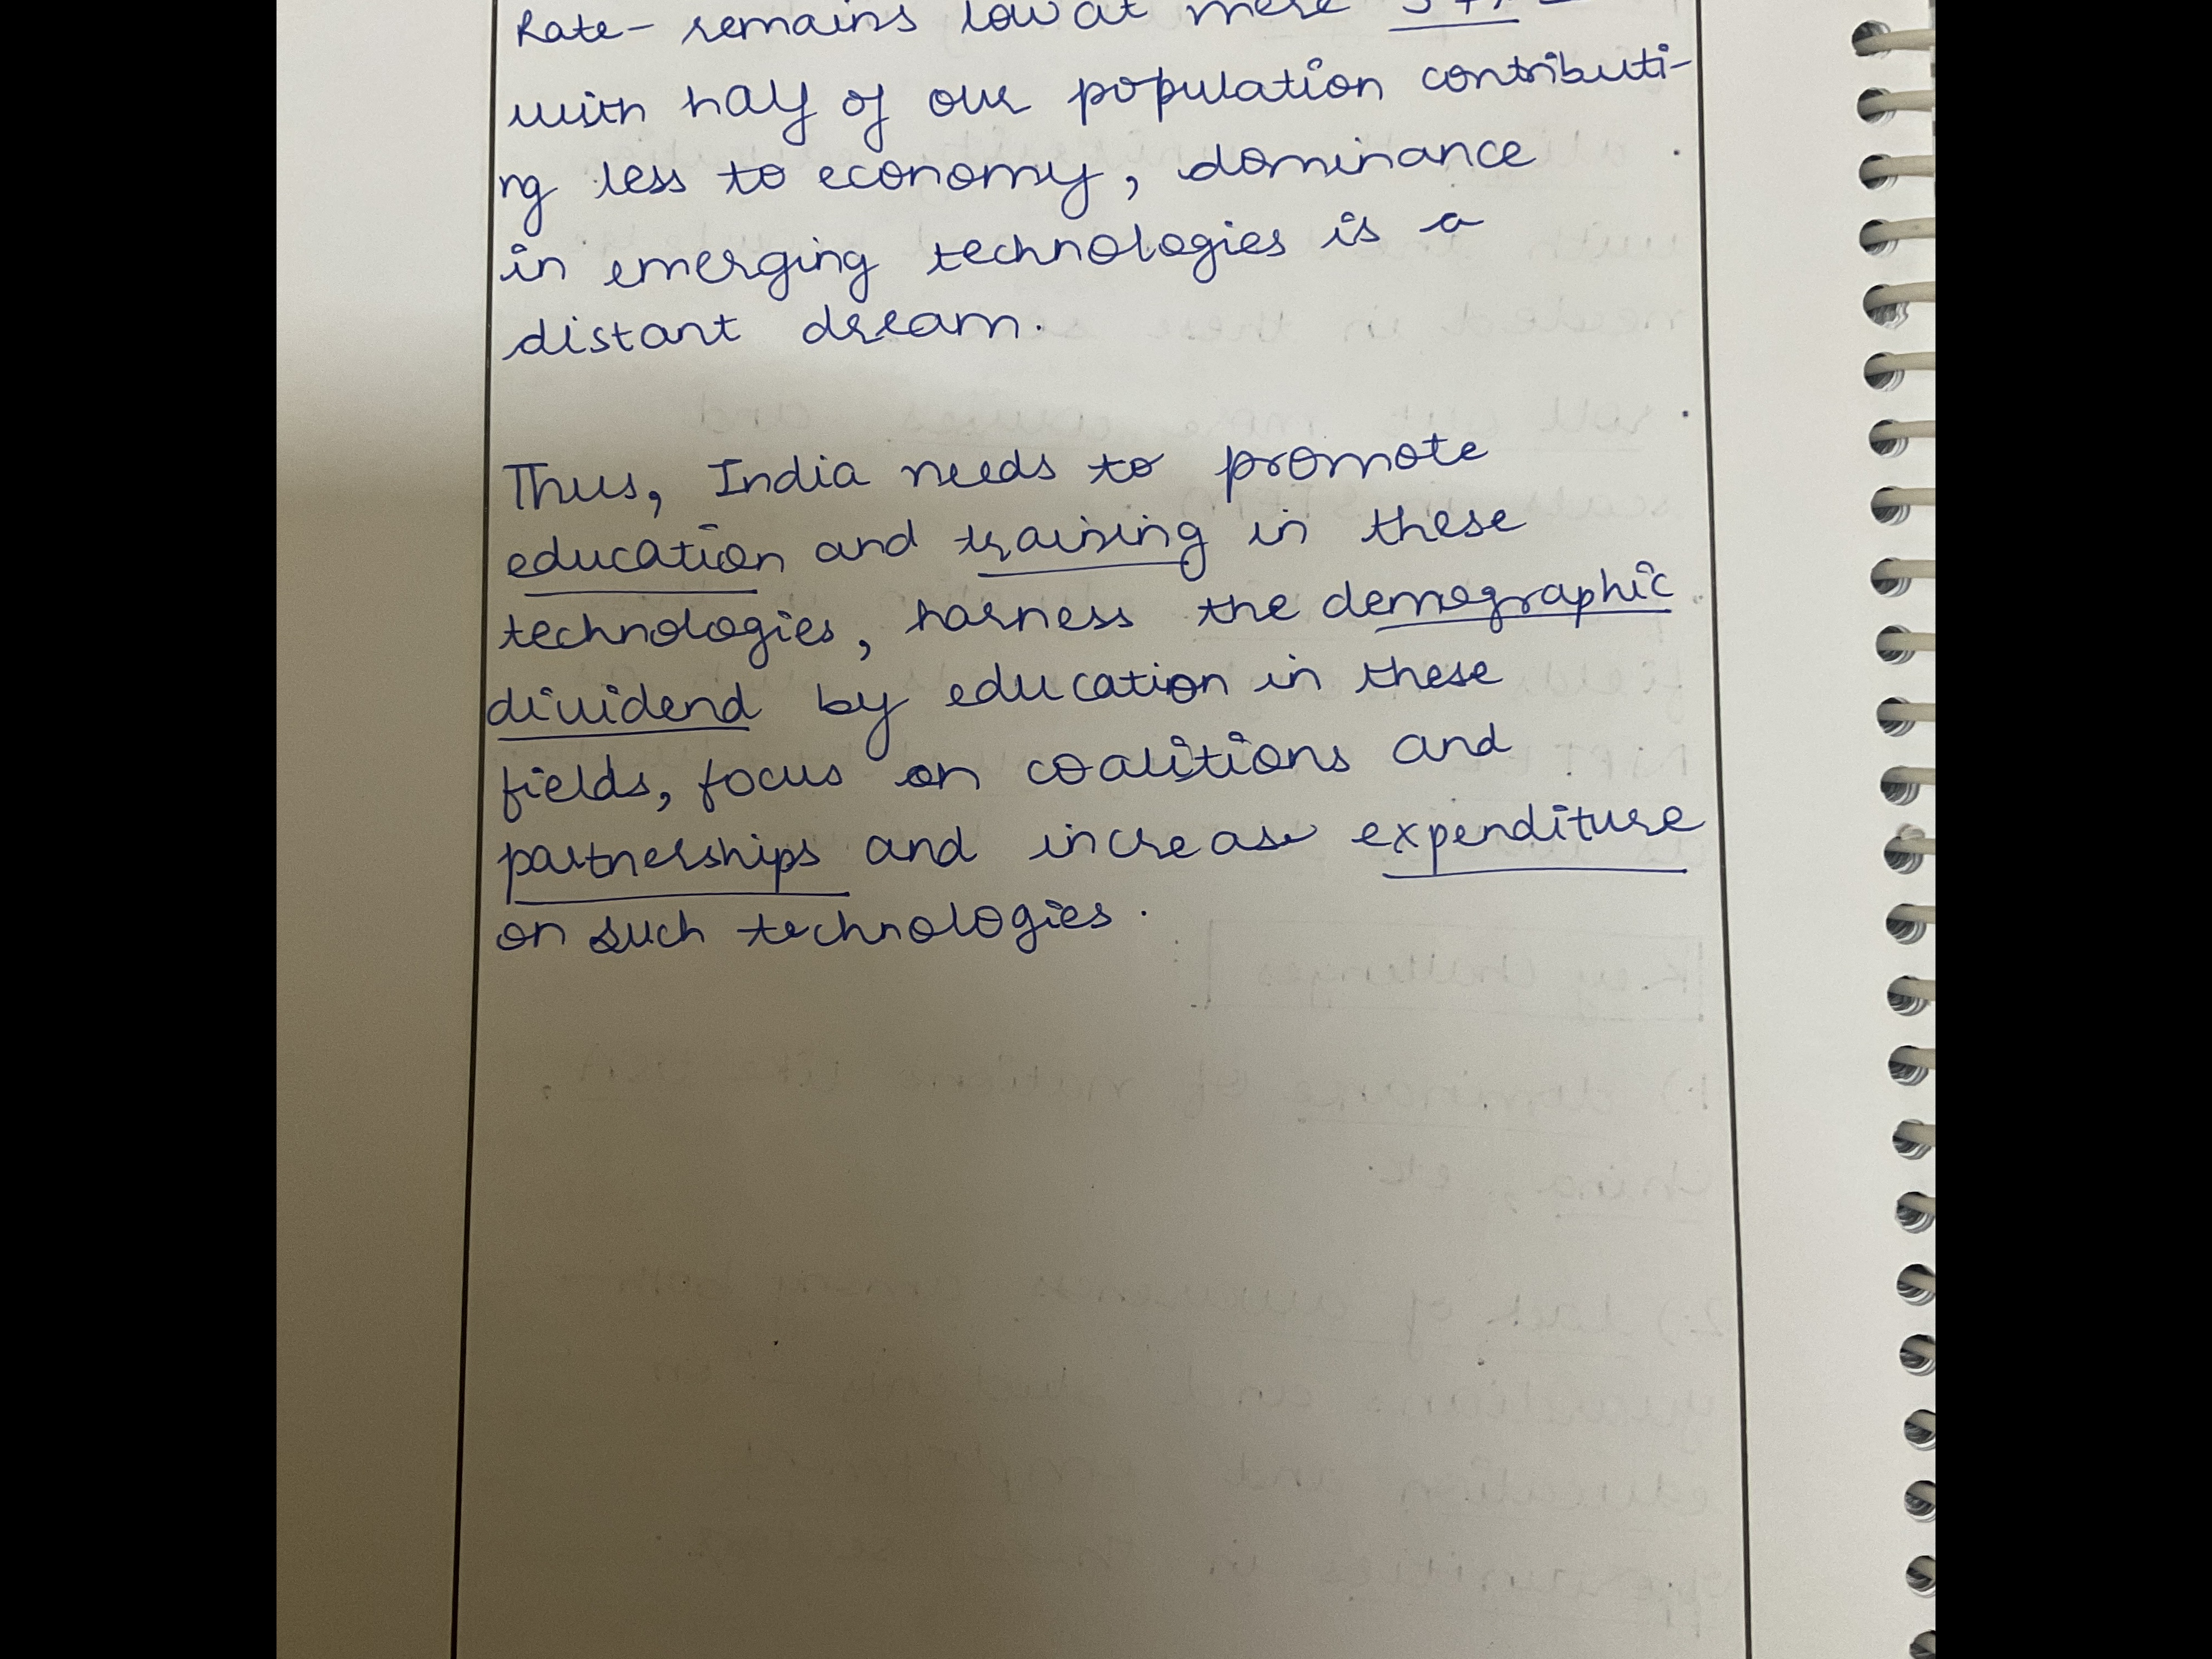 Rate- remains low at mere
with half of our population contributi-
ng less to economy, dominance
in emerging technologies is a
distant dream.
Thus, India needs to promote
education and training in these
technologies, harness the demographic
dividend by education in these
fields, focus on coalitions and
partnerships and increase expenditure
on such technologies.